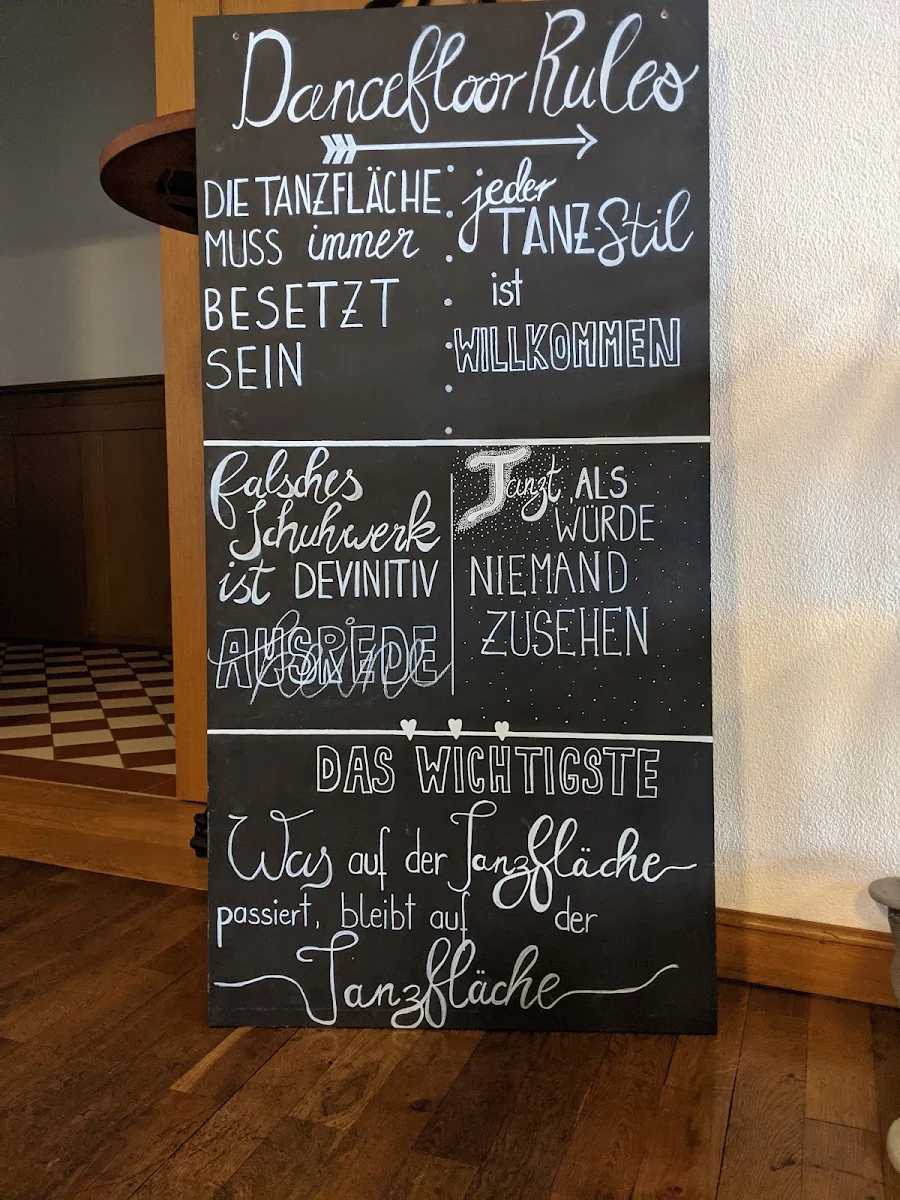 Dancefloor Rules
DIE TANZFLÄCHE
MUSS immer
BESETZT
SEIN
jeder
TANZ-Stil
ist
WILLKOMMEN
falsches
Schuhwerk
ist DEVINITIV
keine
AUSREDE
Tanzt ALS
WÜRDE
NIEMAND
ZUSEHEN
DAS WICHTIGSTE
Was auf der Tanzfläche
passiert, bleibt auf der
Tanzfläche